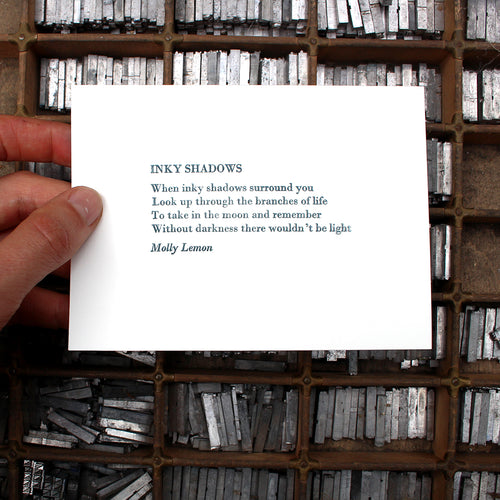 INKY SHADOWS
When inky shadows surround you
Look up through the branches of life
To take in the moon and remember
Without darkness there wouldn't be light
Molly Lemon